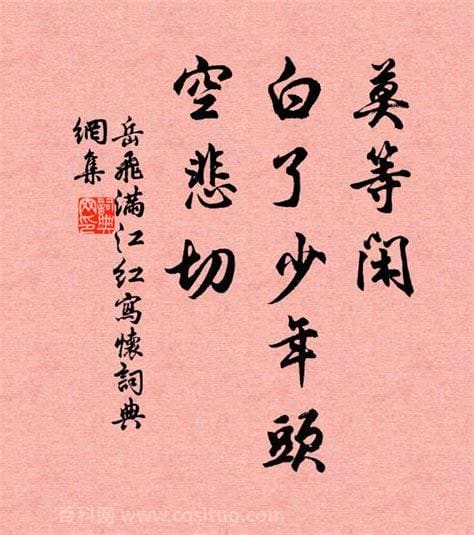 莫等閑
白了少年頭
空悲切
岳飛滿江紅寫懷詞典
網集
百科网 www.cqsituo.com